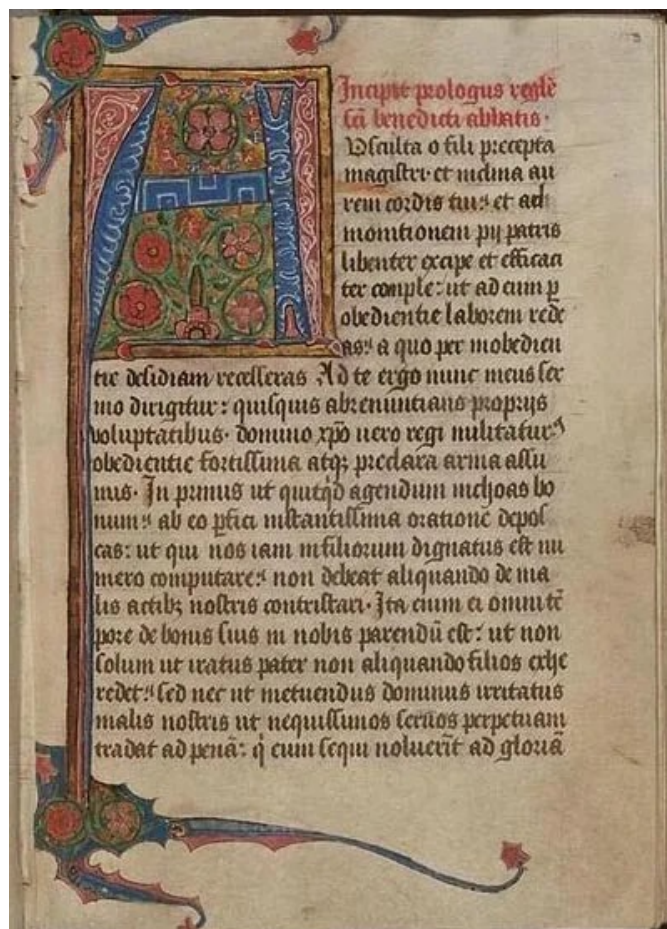 Incipit prologus reglē
scī benedicti abbatis·
AUsculta o fili precepta
magistri· et inclina au
rem cordis tui: et ad
monitionem pij patris
libenter excipe et efficaci
ter comple: ut ad eum p
obedientie laborem rede
as: a quo per inobedien
tie desidiam recesseras Ad te ergo nunc meus ser
mo dirigitur: quisquis abrenuntians proprijs
voluptatibus· domino xp̄o uero regi militaturꝰ
obedientie fortissima atqꝫ preclara arma assu
mis· In primis ut quitq̇d agendum inchoas bo
num: ab eo pfici instantissima oratione depos
cas: ut qui nos iam in filiorum dignatus est nu
mero computare: non debeat aliquando de ma
lis actibꝫ nostris contristari· Ita enim ei omni tē
pore de bonis suis in nobis parendū est: ut non
solum ut iratus pater non aliquando filios exhe
redet: sed nec ut metuendus dominus irritatus
malis nostris ut nequissimos seruos perpetuam
tradat ad penā: q̇ eum sequi noluerīt ad gloriā